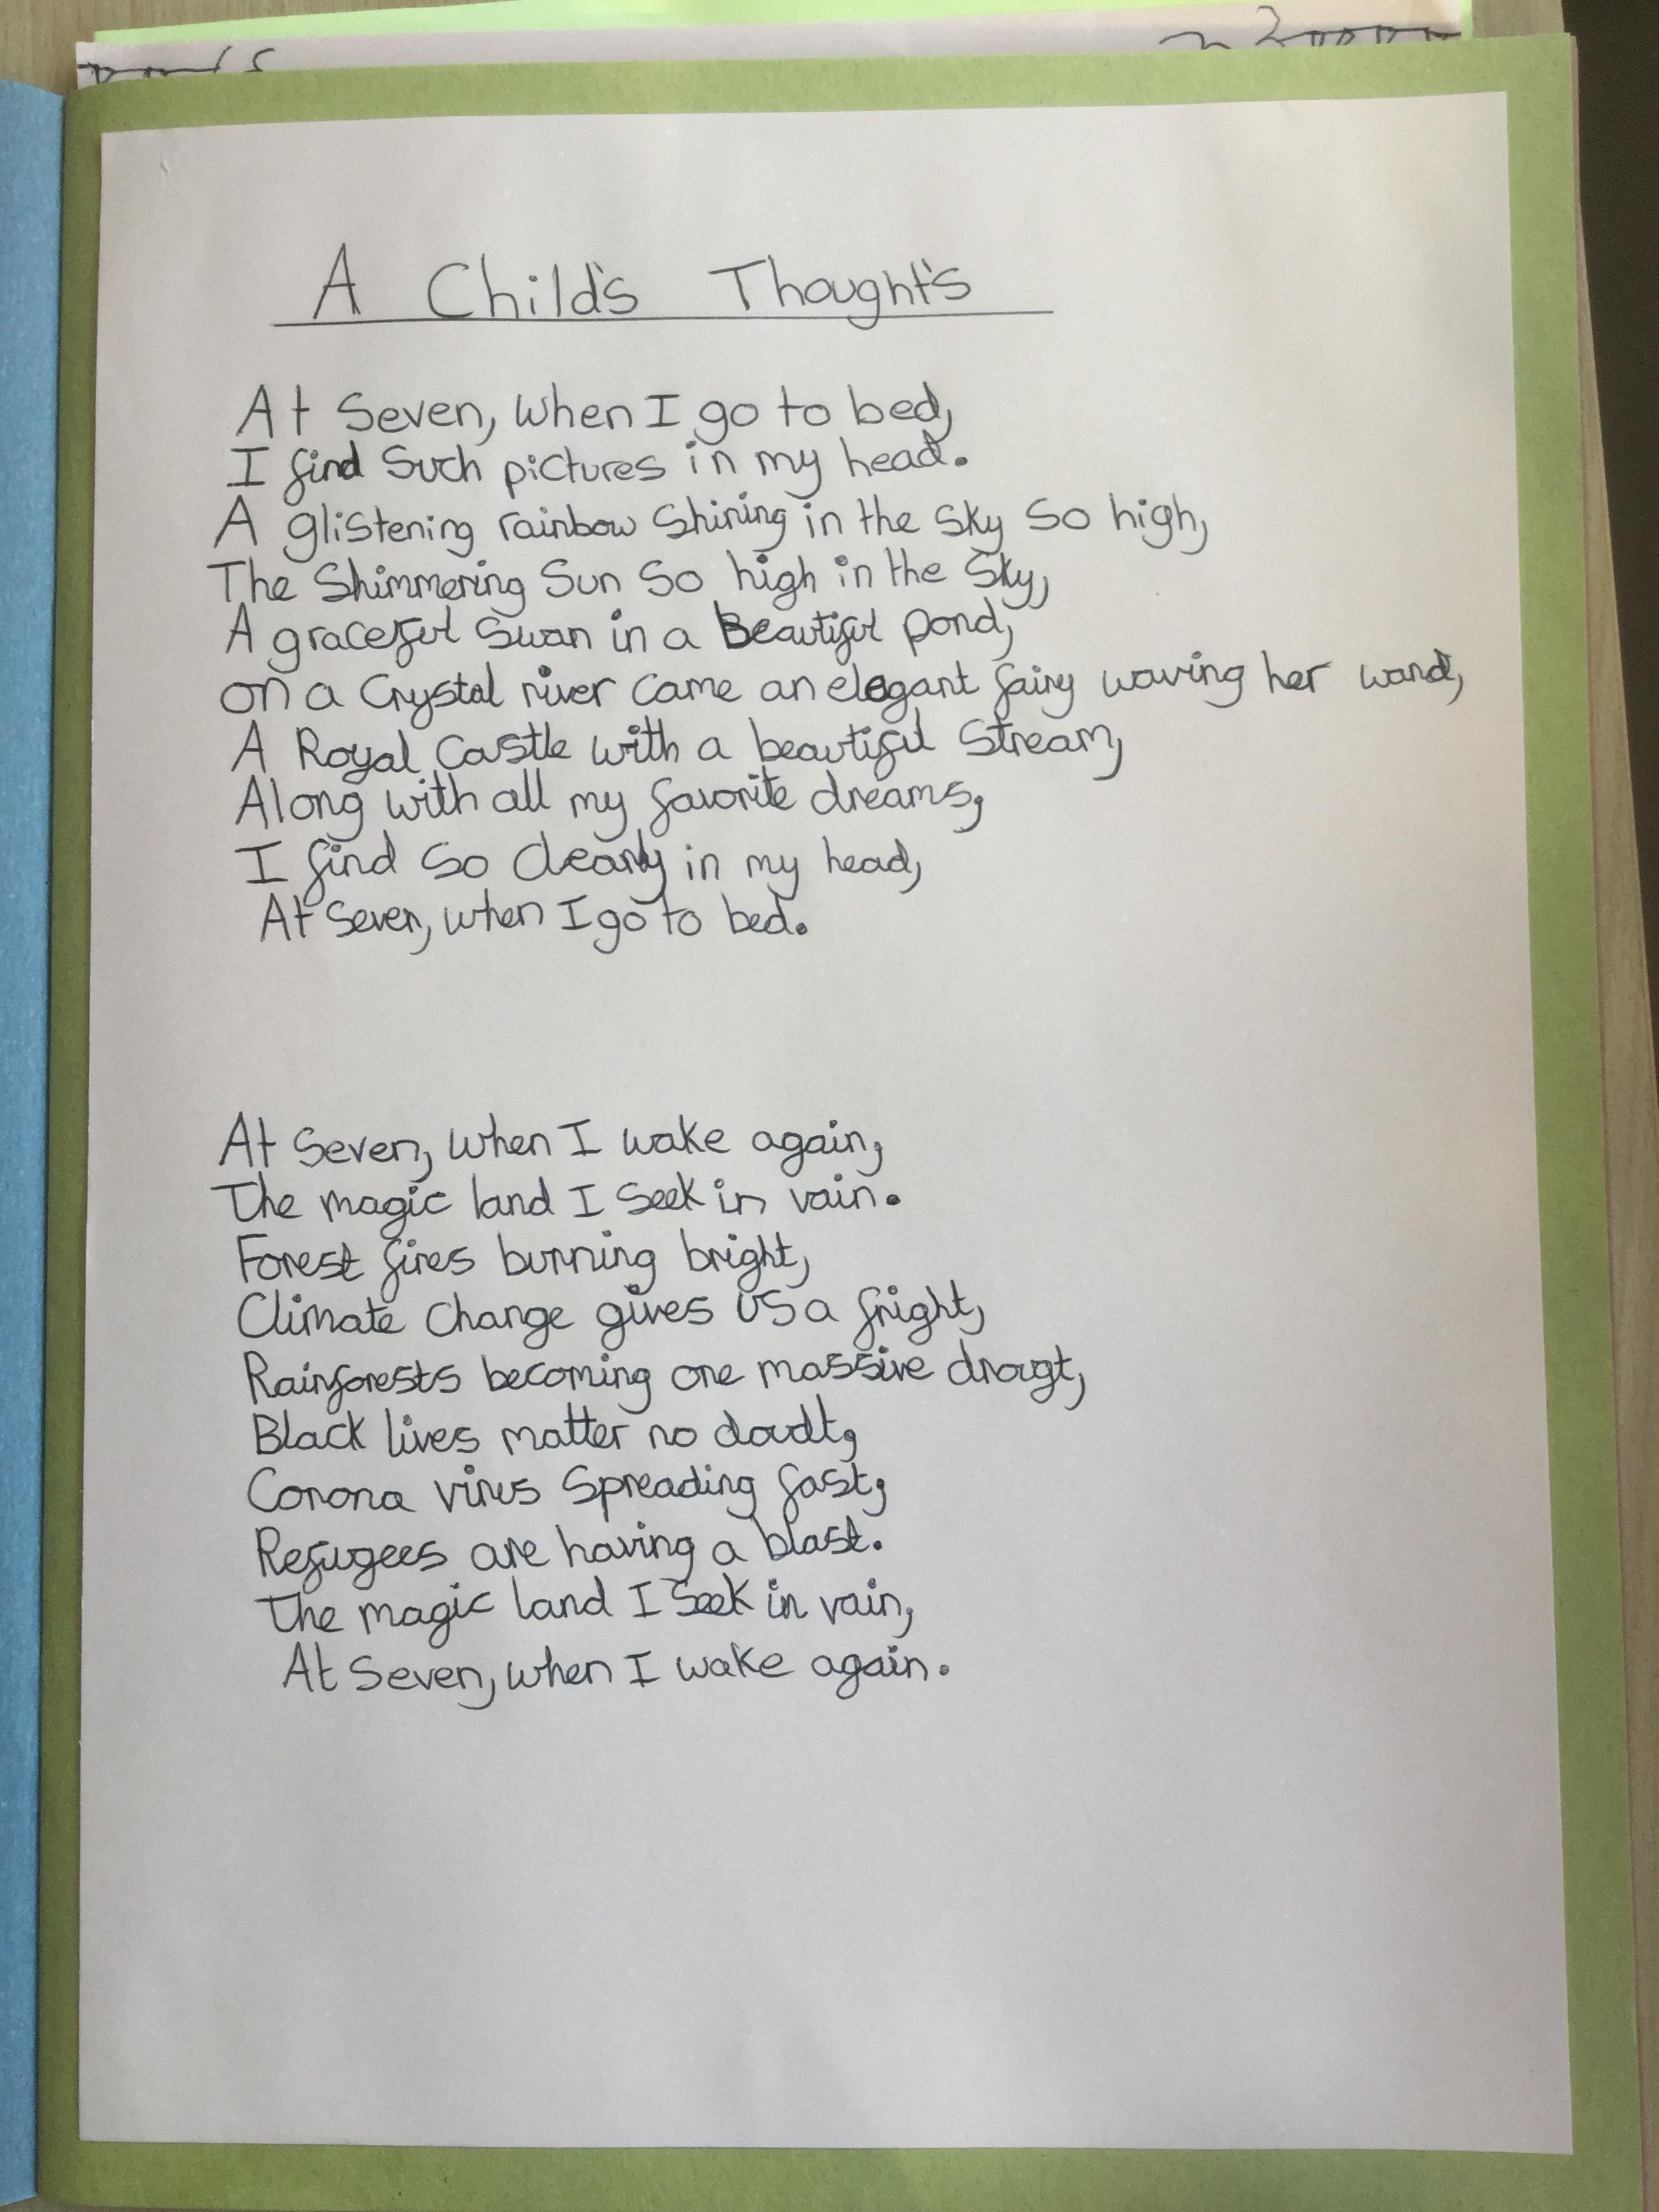 A Child's Thought's
At Seven, when I go to bed,
I find Such pictures in my head.
A glistening rainbow Shining in the Sky So high,
The Shimmering Sun So high in the Sky,
A graceful Swan in a Beautiful pond,
on a Crystal river came an elegant fairy waving her wand,
A Royal Castle with a beautiful Stream,
Along with all my favorite dreams,
I find So Clearly in my head,
At Seven, when I go to bed.
At Seven, when I wake again,
The magic land I Seek in vain.
Forest fires burning bright,
Climate Change gives US a fright,
Rainforests becoming one massive drougt,
Black lives matter no doudt,
Corona virus Spreading fast,
Refugees are having a blast.
The magic land I Seek in vain,
At Seven, when I wake again.